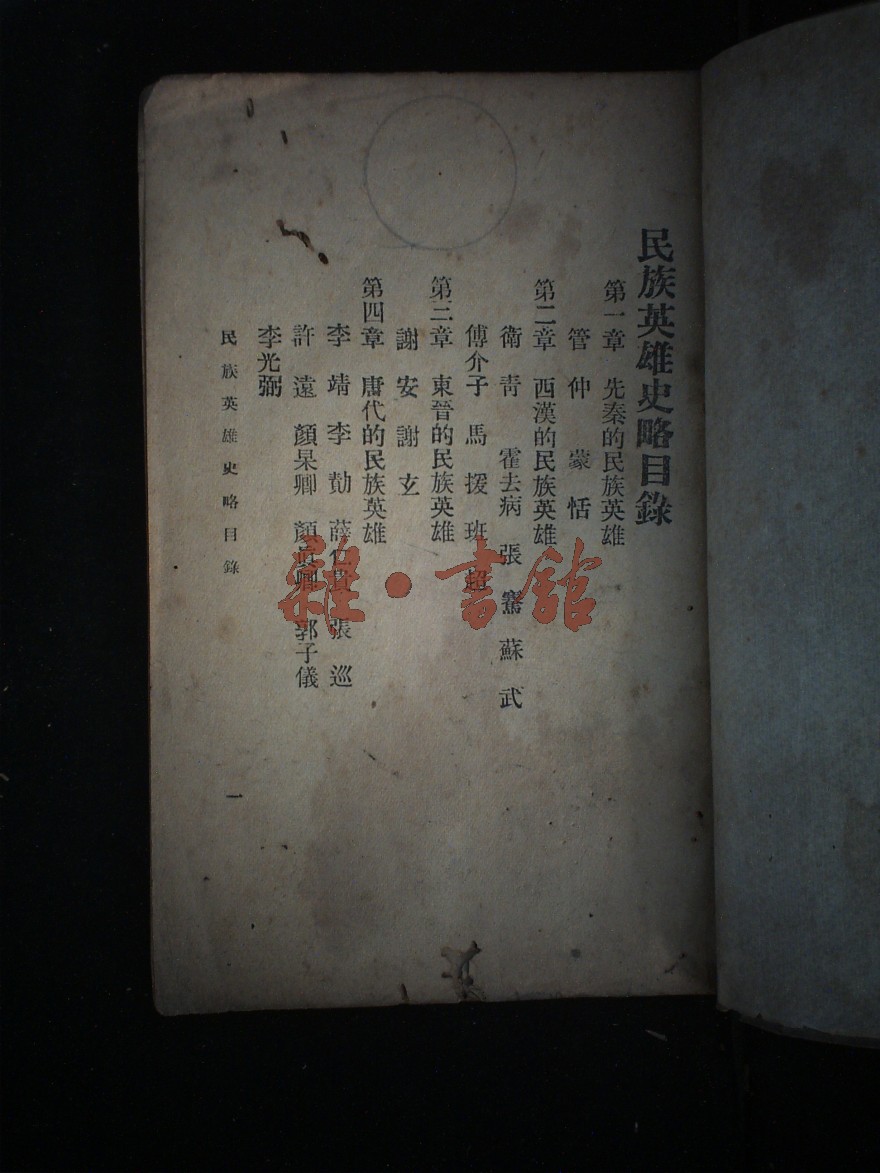 民族英雄史略目錄
第一章 先秦的民族英雄
管仲 蒙恬
第二章 西漢的民族英雄
衛青 霍去病 張騫 蘇武
傅介子 馬援 班超
第三章 東晉的民族英雄
謝安 謝玄
第四章 唐代的民族英雄
李靖 李勣 薛仁貴 張巡
許遠 顏杲卿 顏眞卿 郭子儀
李光弼
民族英雄史略目錄
一
雜·書館